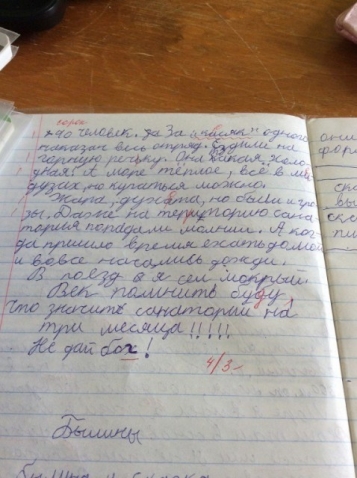 сорок
≈ 40 человек. За "косяк" одного
наказан весь отряд. Ездили на
горную речку. Она какая холо-
дная. А море тёплое, всё в ме-
дузах, но купаться можно.
Жара, духота, но были и гро-
зы. Даже на территорию сана-
тория попадали молнии. А ког-
да пришло время ехать домой
и вовсе начались дожди.
В поезд я сел мокрый.
Век помнить буду,
что значить санаторий на
три месяца!!!!!
Не дай бох!
4/3-
Былины